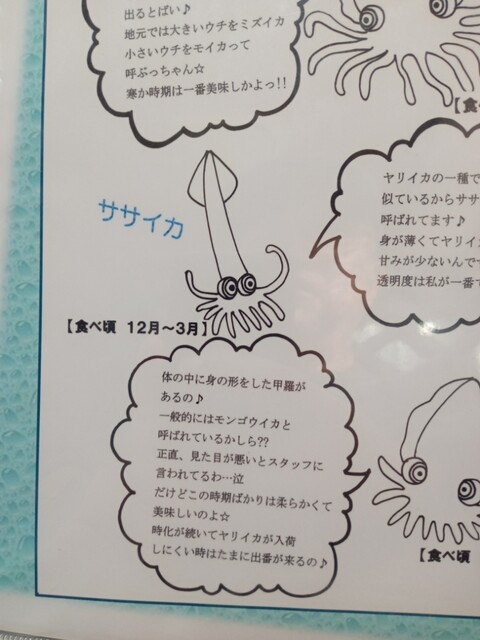 出るとばい♪
地元では大きいウチをミズイカ
小さいウチをモイカって
呼ぶっちゃん☆
寒か時期は一番美味しかよっ!!
【食べ
ササイカ
ヤリイカの一種で
似ているからササ
呼ばれてます♪
身が薄くてヤリイカ
甘みが少ないんで
透明度は私が一番で
【食べ頃 12月～3月】
体の中に身の形をした甲羅が
あるの♪
一般的にはモンゴウイカと
呼ばれているかしら??
正直、見た目が悪いとスタッフに
言われてるわ…泣
だけどこの時期ばかりは柔らかくて
美味しいのよ☆
時化が続いてヤリイカが入荷
しにくい時はたまに出番が来るの♪
【食べ頃